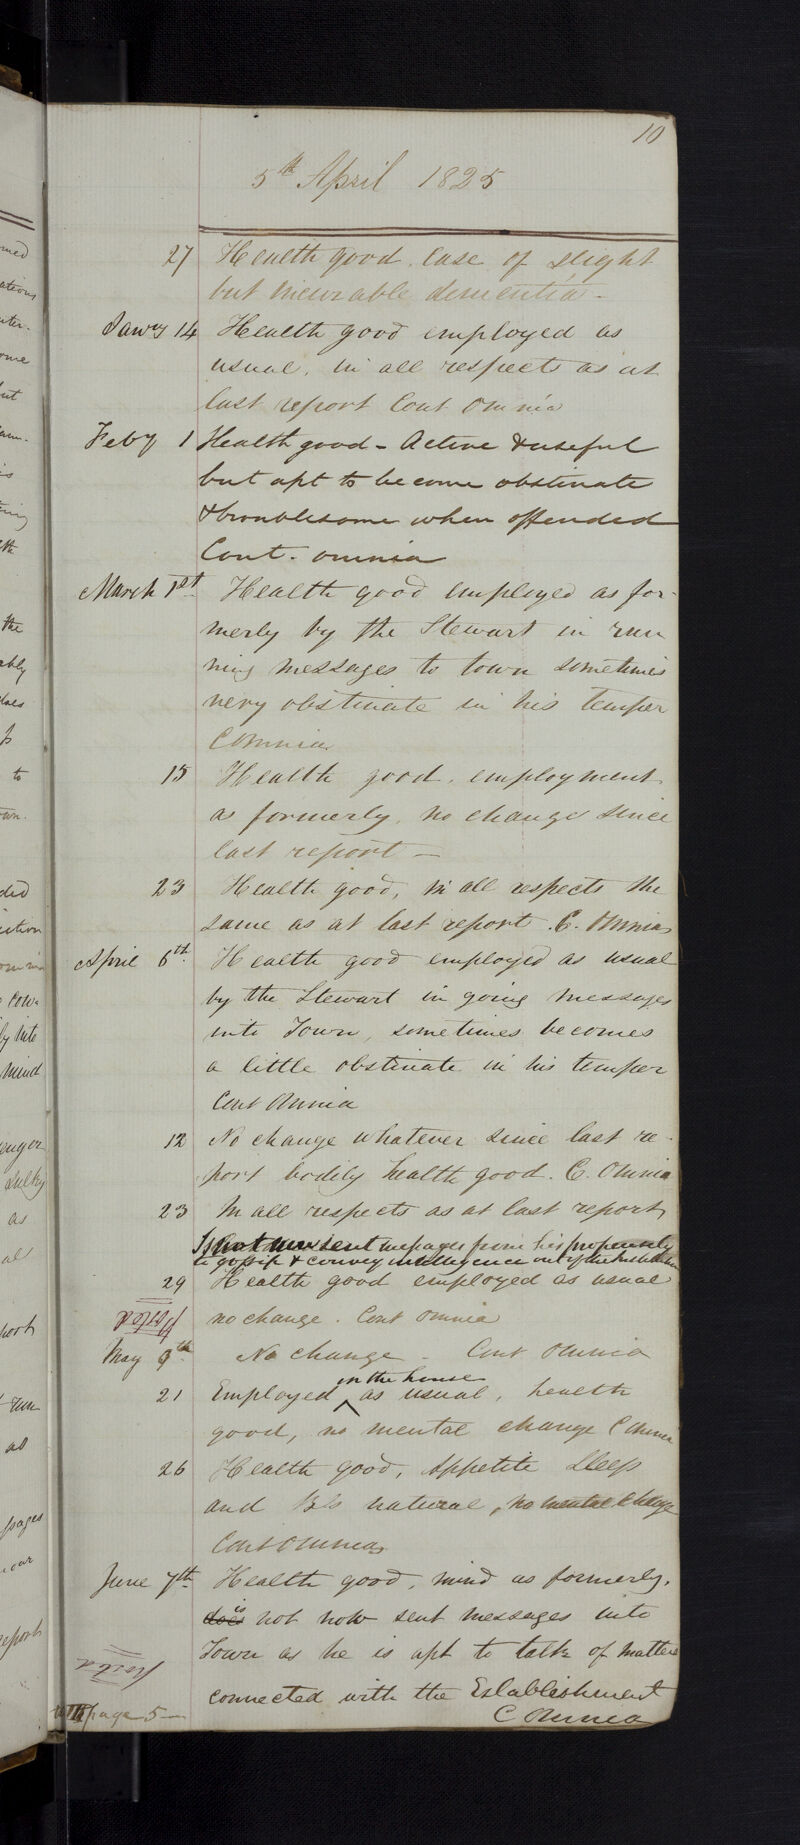 10
5th April 1825
27 Health good. Case of slight
but incurable dementia -
Jany 14 Health good employed as
usual, in all respects as at
last report Cont Omnia
Feby 1 Health good - Active & useful
but apt to become obstinate
& troublesome when offended
Cont. omnia
March 1st Health good employed as for-
merly by the Stewart in run
ning messages to town sometimes
very obstinate in his temper
C Omnia
15 Health good, employment
as formerly, no change since
last report -
23 Health good, in all respects the
same as at last report. C. Omnia
April 6th Health good employed as usual
by the Stewart in going messages
into Town, sometimes becomes
a little obstinate in his temper
Cont Omnia
12 No change whatever since last re-
port bodily health good. C. Omnia
23 In all respects as at last report,
Is not now sent messages from his propensity
to gossip & convey intelligence out of the Institution
29 Health good employed as usual
Posted no change. Cont Omnia
May 9th No change - Cont Omnia
in the house
21 Employed ^ as usual, health
good, no mental change C Omnia
26 Health good, Appetite sleep
and B/s natural, no mental change
Cont Omnia
June 7th Health good, mind as formerly,
is
does not now sent messages into
Town as he is apt to talk of matters
Posted
connected with the Establishment
page 5 - C Omnia